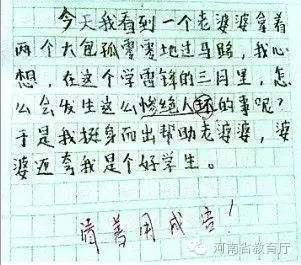 今天我看到一个老婆婆拿着
两个大包孤零零地过马路，我心
想，在这个学雷锋的三月里，怎
么会发生这么惨绝人环的事呢？
于是我挺身而出帮助老婆婆，婆
婆还夸我是个好学生。
请善用成语！
河南省教育厅